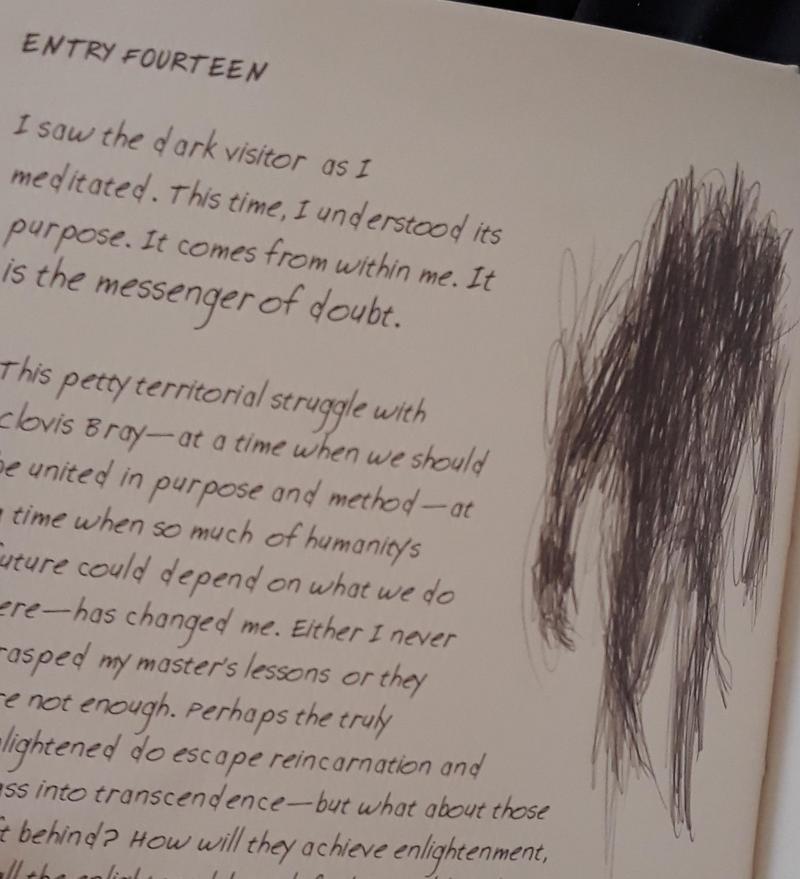 ENTRY FOURTEEN
I saw the dark visitor as I
meditated. This time, I understood its
purpose. It comes from within me. It
is the messenger of doubt.
This petty territorial struggle with
clovis Bray—at a time when we should
be united in purpose and method—at
time when so much of humanity's
future could depend on what we do
ere—has changed me. Either I never
rasped my master's lessons or they
re not enough. Perhaps the truly
nlightened do escape reincarnation and
ass into transcendence—but what about those
ft behind? How will they achieve enlightenment,
all the